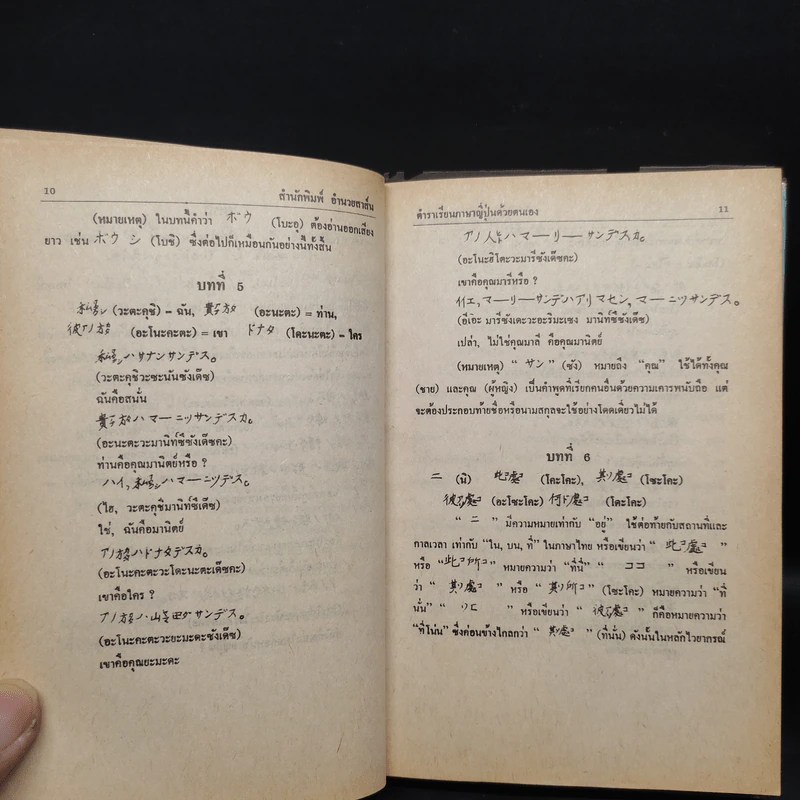 10
สำนักพิมพ์ อำนวยสาส์น
(หมายเหตุ) ในบทนี้คำว่า ボウ (โบะอุ) ต้องอ่านออกเสียง
ยาว เช่น ボウシ (โบชิ) ซึ่งต่อไปก็เหมือนกันอย่างนี้ทั้งสิ้น
บทที่ 5
(วะตะคุชิ) – ฉัน, (อะนะตะ) = ท่าน,
(อะโนะคะตะ) = เขา ドナタ (โดะนะตะ) – ใคร
ハサナンサンデス。
(วะตะคุชิวะซะนันซังเด๊ซ)
ฉันคือสนั่น
ハマーニッサンデスカ。
(อะนะตะวะมานิทซ์ซังเด๊ซคะ)
ท่านคือคุณมานิตย์หรือ ?
ハイ, ハマーニッデス。
(ไฮ, วะตะคุชิมานิทซ์เด๊ซ)
ใช่, ฉันคือมานิตย์
アノ方ハドナタデスカ。
(อะโนะคะตะวะโดะนะตะเด๊ซคะ)
เขาคือใคร ?
アノ方ハ山田サンデス。
(อะโนะคะตะวะยะมะดะซังเด๊ซ)
เขาคือคุณยะมะดะ
ตำราเรียนภาษาญี่ปุ่นด้วยตนเอง
11
アノ人ハマーリーサンデスカ。
(อะโนะฮิโตะวะมารีซังเด๊ซคะ)
เขาคือคุณมารีหรือ ?
イイエ, マーリーサンデハアリマセン, マーニッサンデス。
(อีเอ๊ะ มารีซังเดะวะอะริมะเซง มานิทซ์ซังเด๊ซ)
เปล่า, ไม่ใช่คุณมาลี คือคุณมานิตย์
(หมายเหตุ) “ サン ” (ซัง) หมายถึง “คุณ” ใช้ได้ทั้งคุณ
(ชาย) และคุณ (ผู้หญิง) เป็นคำพูดที่เรียกคนอื่นด้วยความเคารพนับถือ แต่
จะต้องประกอบท้ายชื่อหรือนามสกุลจะใช้อย่างโดดเดี่ยวไม่ได้
บทที่ 6
ニ (นิ) 此處 (โคะโคะ), 其處 (โซะโคะ)
彼處 (อะโซะโคะ) 何處 (โดะโคะ)
“ ニ ” มีความหมายเท่ากับ “อยู่” ใช้ต่อท้ายกับสถานที่และ
กาลเวลา เท่ากับ “ใน, บน, ที่” ในภาษาไทย หรือเขียนว่า “ 此處 ”
หรือ “ 此所 ” หมายความว่า “ที่นี่” “ ココ ” หรือเขียน
ว่า “ 其處 ” หรือ “ 其所 ” (โซะโคะ) หมายความว่า “ที่
นั่น” “ ソコ ” หรือเขียนว่า “ 彼處 ” ก็คือหมายความว่า
“ที่โน่น” ซึ่งค่อนข้างไกลกว่า “ 其處 ” (ที่นั่น) ดังนั้นในหลักไวยากรณ์